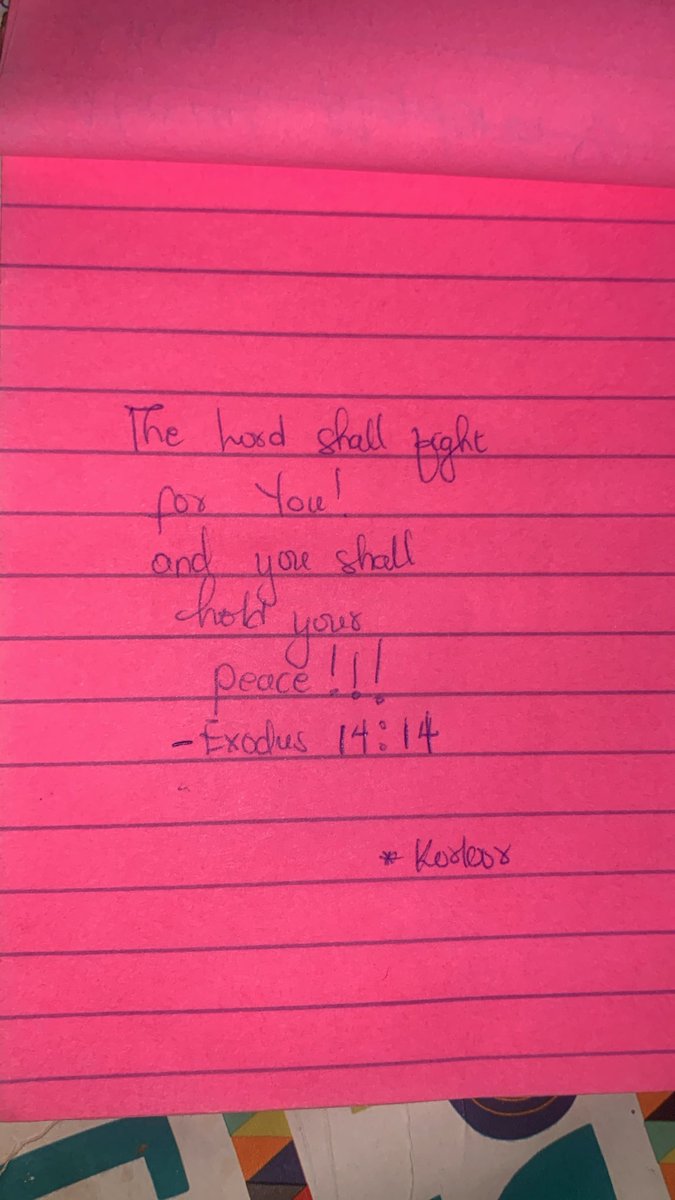 The Lord shall fight
for You!
and you shall
hold your
peace!!!
- Exodus 14:14
* Korleor